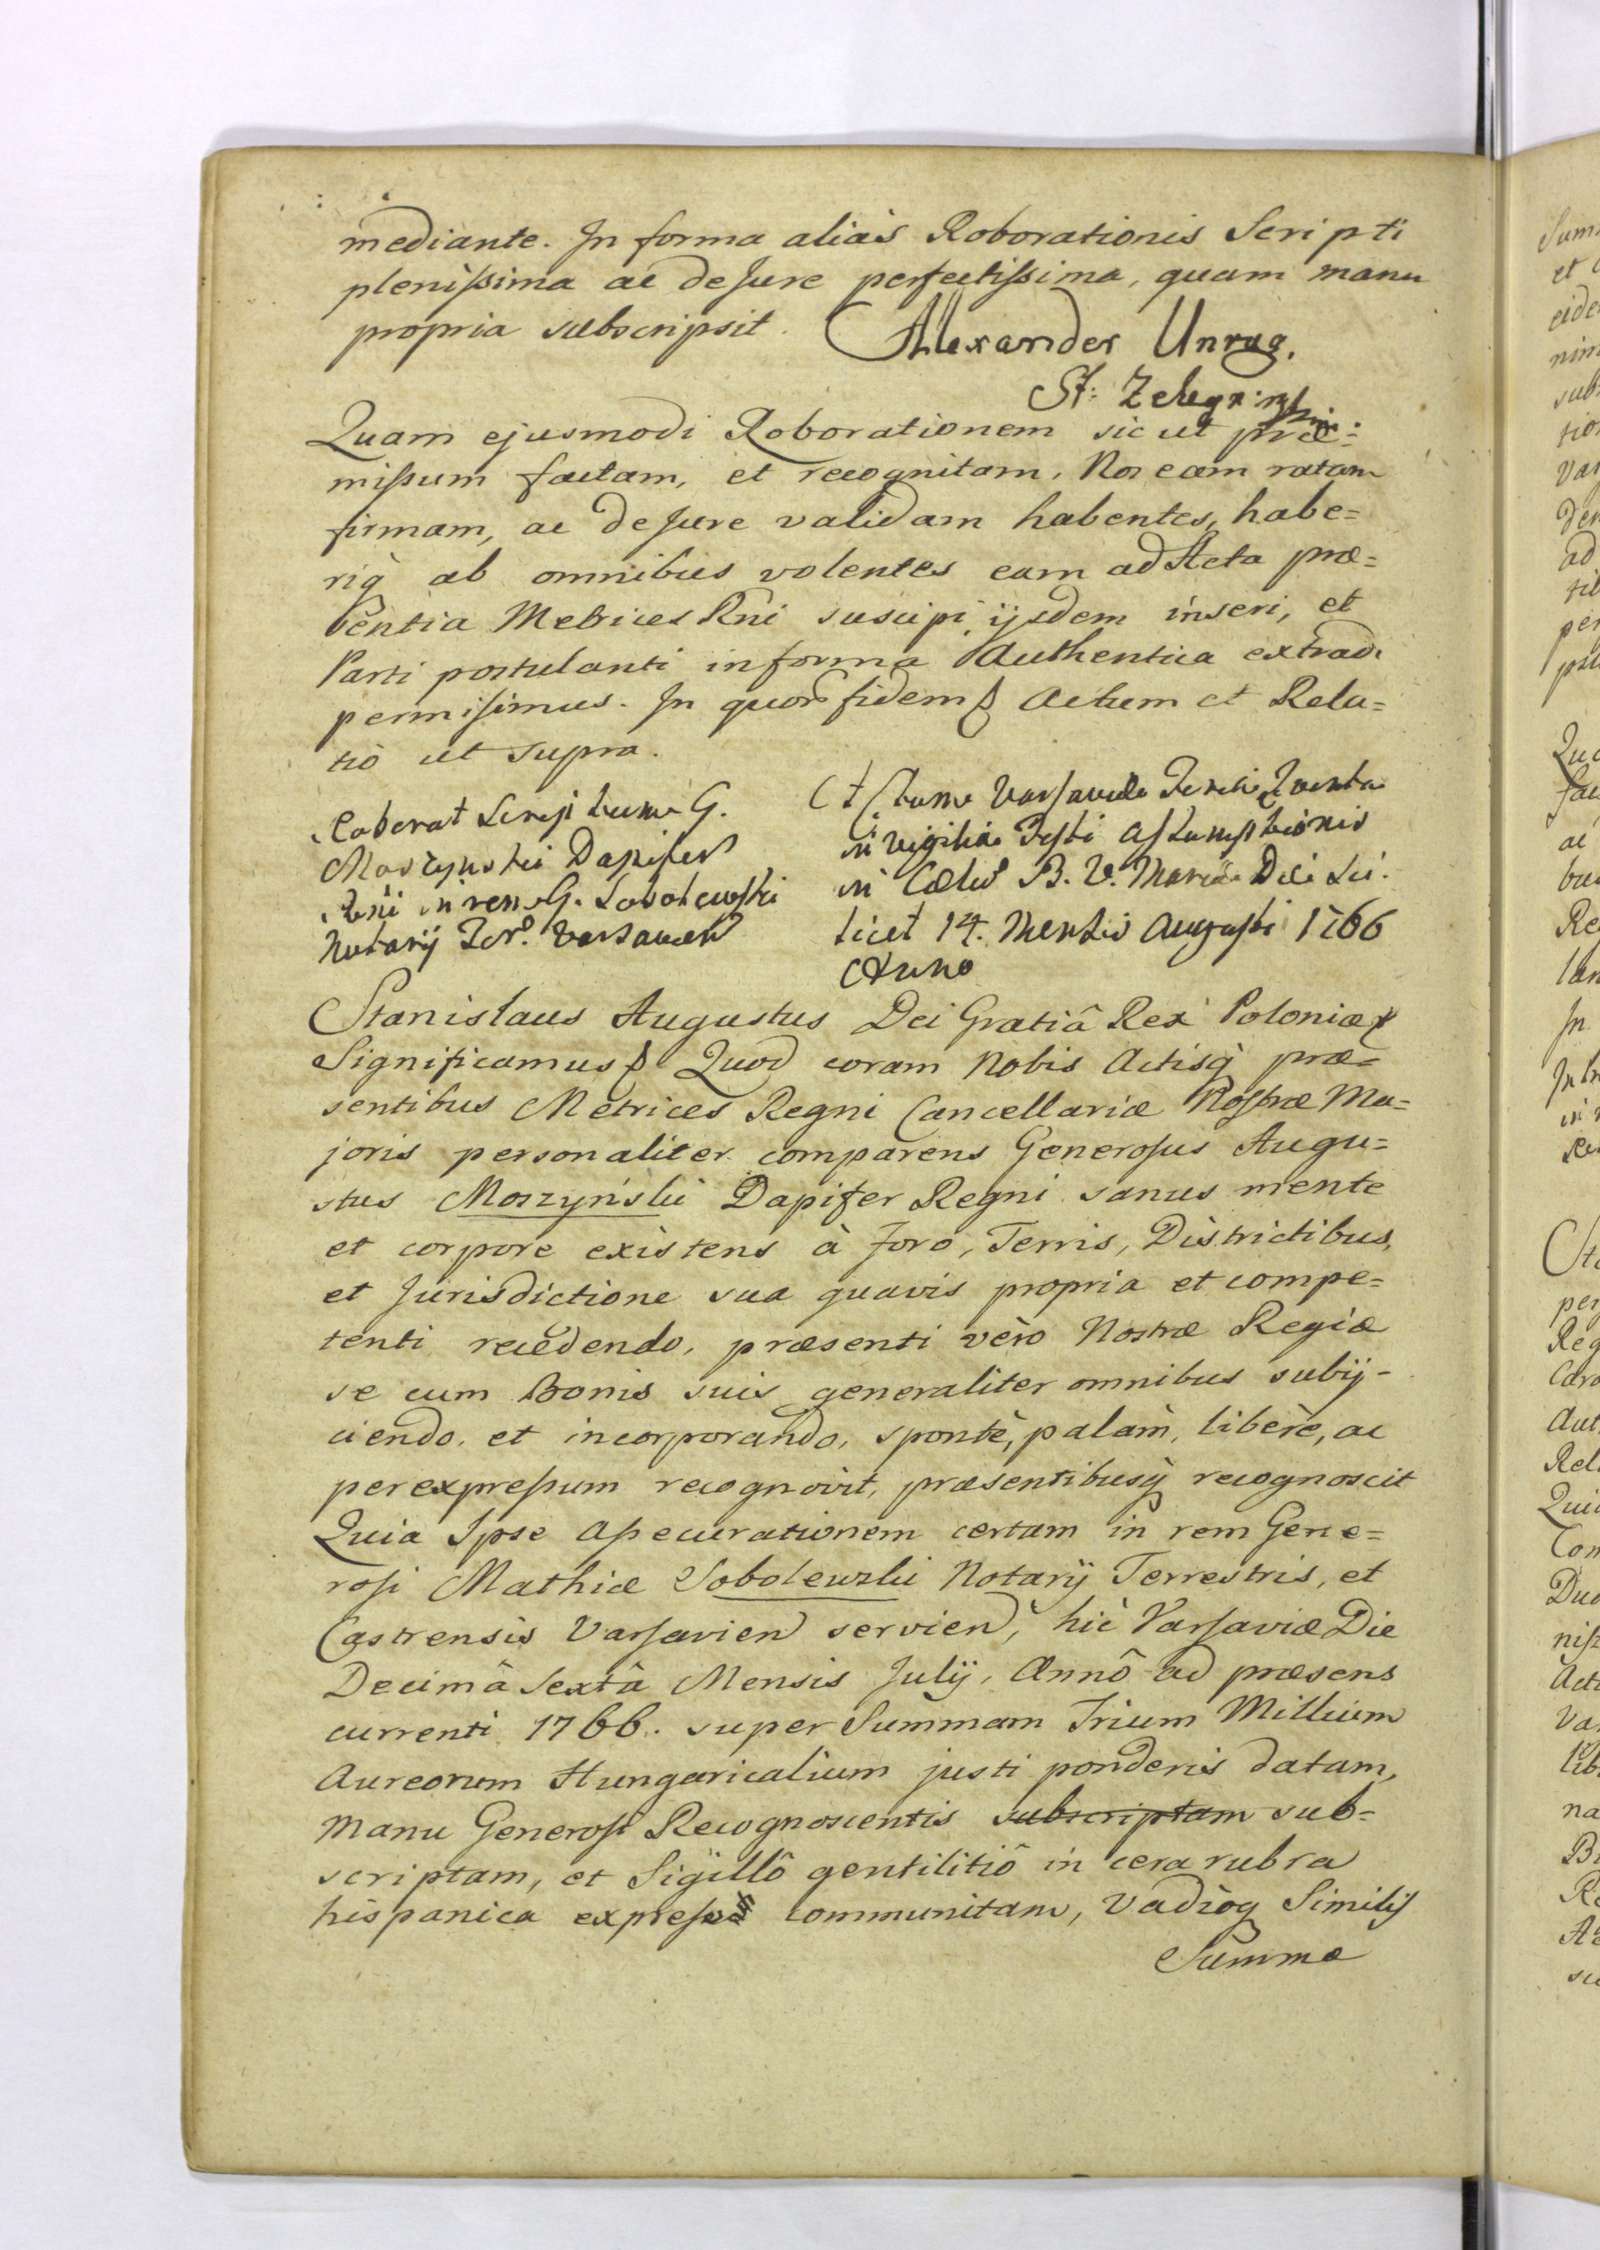 mediante. In forma aliàs Roborationis Scripti
plenissima ac de Jure perfectissima, quam manu
propria subscripsit. Alexander Unrug.
St:
Quam ejusmodi Roborationem sic ut præ=
missum factam, et recognitam, Nos eam ratam
firmam, ac de Jure validam habentes, habe=
riq̀ ab omnibus volentes eam ad Acta præ=
sentia Metrices Rni suscipi, ijsdem inseri, et
Parti postulanti in forma Authentica extradi
permisimus. In quor fidem Actum et Rela=
tio ut supra.
Roborat Scriptum G.
Moszynski Dapifer
Rni in rem G. Sobolewski
Notarij Ter. Varsavien
Actum Varsaviæ Feria Quinta
in vigilia Festi Assumptionis
in Cælis B. V. Mariæ Die sci.
licet 14. Mensis Augusti 1766
Anno
Stanislaus Augustus Dei Gratiâ Rex Poloniæ
Significamus Quod coram Nobis Actisq̀ præ=
sentibus Metrices Regni Cancellariæ Nostræ Ma=
joris personaliter comparens Generosus Augu=
stus Moszyński Dapifer Regni sanus mente
et corpore existens à Foro, Terris, Districtibus,
et Jurisdictione sua quavis propria et compe=
tenti recedendo, præsenti vèro Nostræ Regiæ
se cum Bonis suis generaliter omnibus subij-
ciendo, et incorporando, spontè, palàm, liberè, ac
per expressum recognovit, præsentibusq̀ recognoscit
Quia Ipse Assecurationem certam in rem Gene=
rosi Mathiæ Sobolewski Notarij Terrestris, et
Castrensis Varsavien servien, hìc Varsaviæ Die
Decimâ Sextâ Mensis Julij, Annô ad præsens
currenti 1766. super Summam Trium Millium
Aureorum Hungaricalium justi ponderis datam,
Manu Generosi Recognoscentis subscriptam sub=
scriptam, et Sigillô gentilitiô in cera rubra
hispanica expresso communitam, Vadioq̀ Similis
Summæ